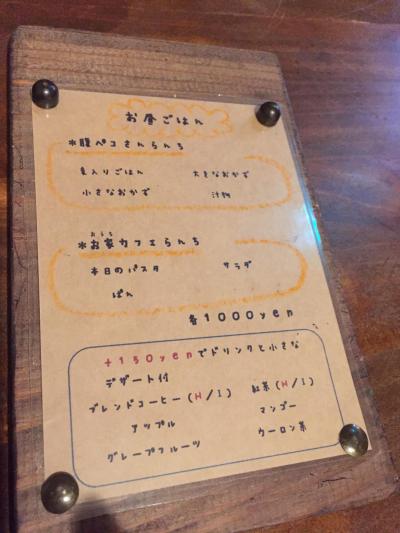 お昼ごはん
*腹ペコさんらんち
豆入りごはん 大きなおかず
小さなおかず 汁物
おうち
*お家カフェらんち
本日のパスタ サラダ
ぱん
各1000yen
+150yenでドリンクと小さな
デザート付
ブレンドコーヒー(H/I) 紅茶(H/I)
アップル マンゴー
グレープフルーツ ウーロン茶